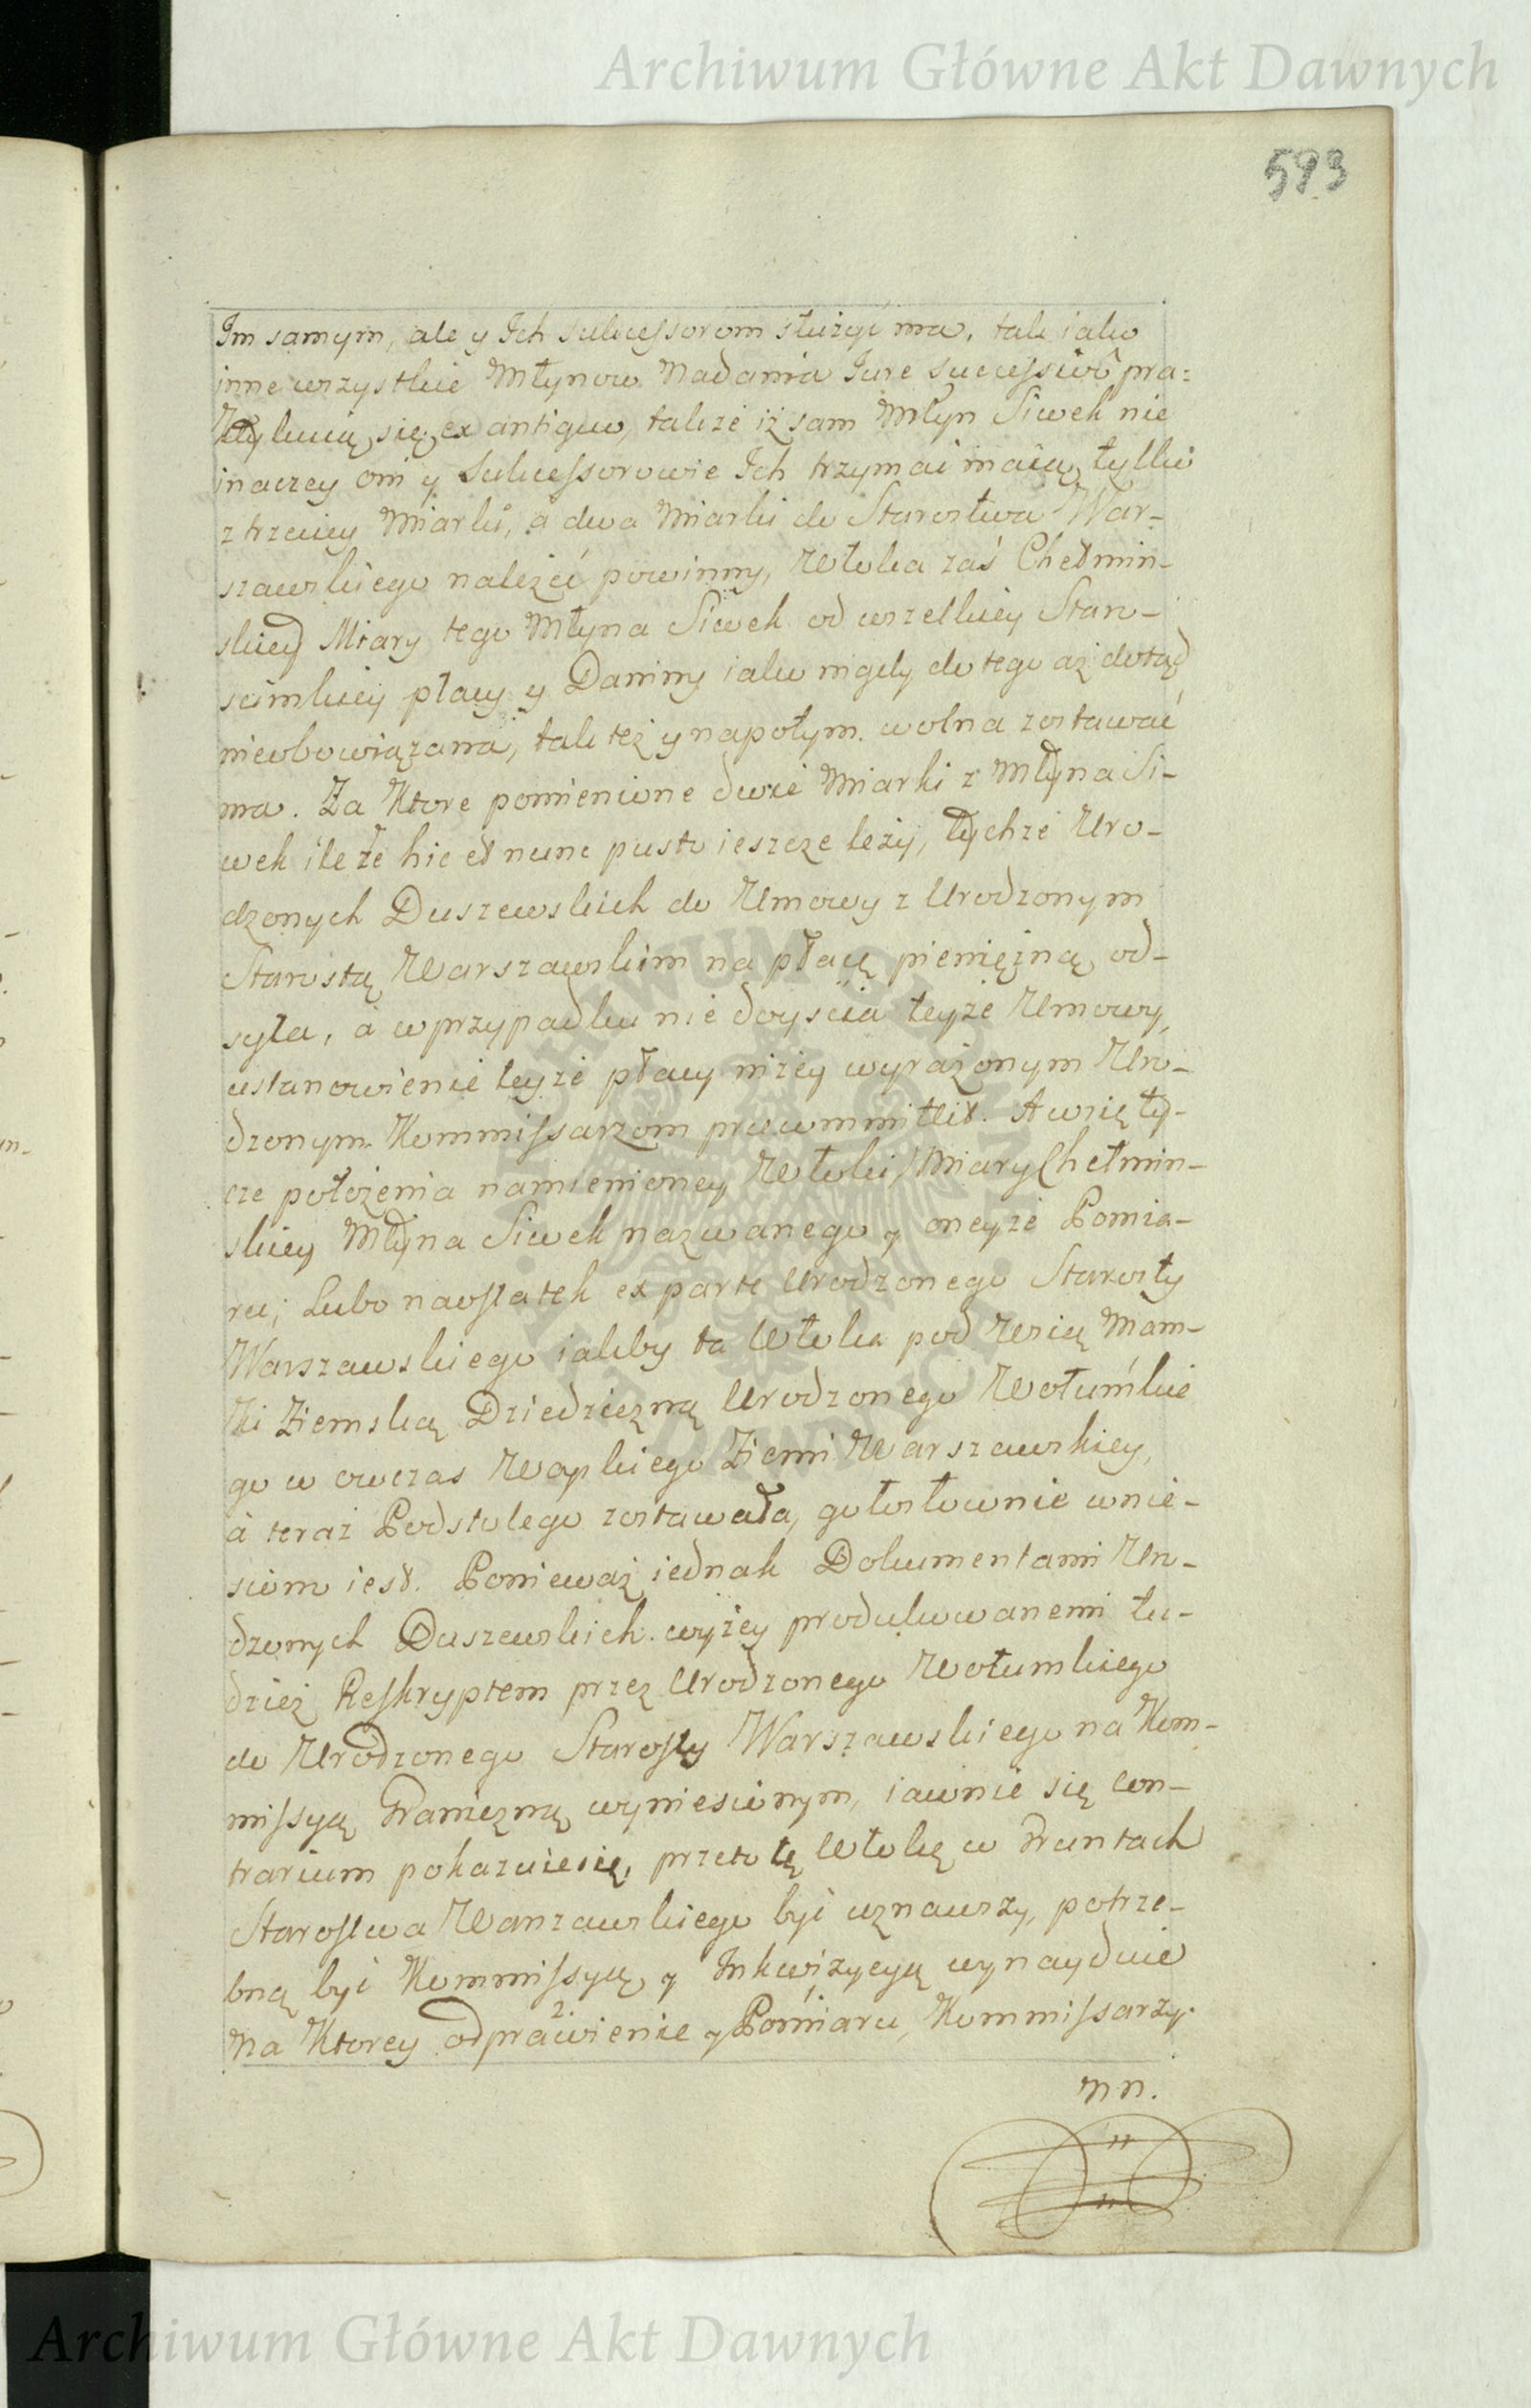 Archiwum Główne Akt Dawnych
593
Im samym, ale y Ich sukcessorom służyć ma, tak iako
inne wszystkie Młynow Nadania Iure successivo pra=
ktykuią się ex antiquo, także iż sam Młyn Siwek nie
inaczey oni y Sukcessorowie Ich trzymać maią, tylko
z trzeciey Miarki, a dwa Miarki do Starostwa War-
szawskiego należeć powinny, Włoka zaś Chełmin-
skiey Miary tego Młyna Siwek od wszelkiey Staro-
scinskiey płacy y Daniny iako nigdy do tego aż dotąd
nieobowiązana, tak też y napotym wolna zostawać
ma. Za Ktore pomienione dwie Miarki z Młyna Si-
wek ile że hic et nunc pusto ieszcze leży, tychże Uro-
dzonych Duszewskich do Umowy z Urodzonym
Starostą Warszawskim na płacę pieniężną od-
syła, a w przypadku nie doyścia teyże Umowy,
ustanowienie teyże płacy niżey wyrażonym Uro-
dzonym Kommissarzom praecommittit. A wzięty-
cze położenia namienioney Włoki Miary Chełmin-
skiey Młyna Siwek nazwanego y oneyże Pomia-
ru; Lubo naostatek ex parte Urodzonego Starosty
Warszawskiego iakby ta Włoka pod Wsią Mom-
ki Ziemską Dziedziczną Urodzonego Wołumskie
go w owczas Woyskiego Ziemi Warszawskiey,
à teraz Podstolego zostawała, gołosłownie wnie-
siono iest. Ponieważ iednak Dokumentami Uro-
dzonych Duszewskich wyżey produkowanemi tu-
dzież Reskryptem przez Urodzonego Wołumskiego
do Urodzonego Starosty Warszawskiego na Kom-
missyą Graniczną wyniesionym, iawnie się con-
trarium pokazuiesię, przeto tę Włokę w Gruntach
Starostwa Warszawskiego być uznawszy, potrze-
bną być Kommissyą y Inkwizycyą wynayduie
Na Ktorey odprawienie y Pomiaru, Kommissarzy
nn.
Archiwum Główne Akt Dawnych